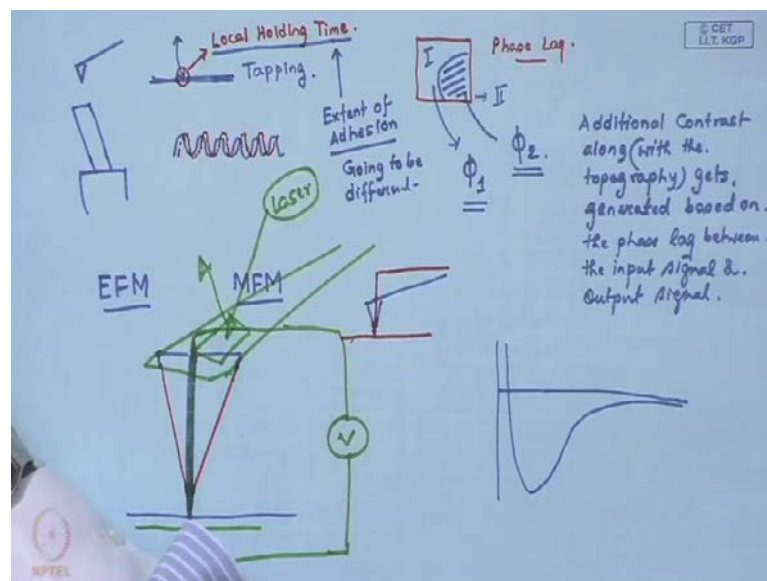 © CET
I.I.T. KGP
Local Holding Time.
Tapping.
Extent of
Adhesion
Going to be
different-
Phase Lag.
I
II
ϕ1
ϕ2.
Additional Contrast
along (with the
topography) gets,
generated based on.
the phase lag between
the input signal &
Output signal.
Laser
EFM
MFM
V
NPTEL